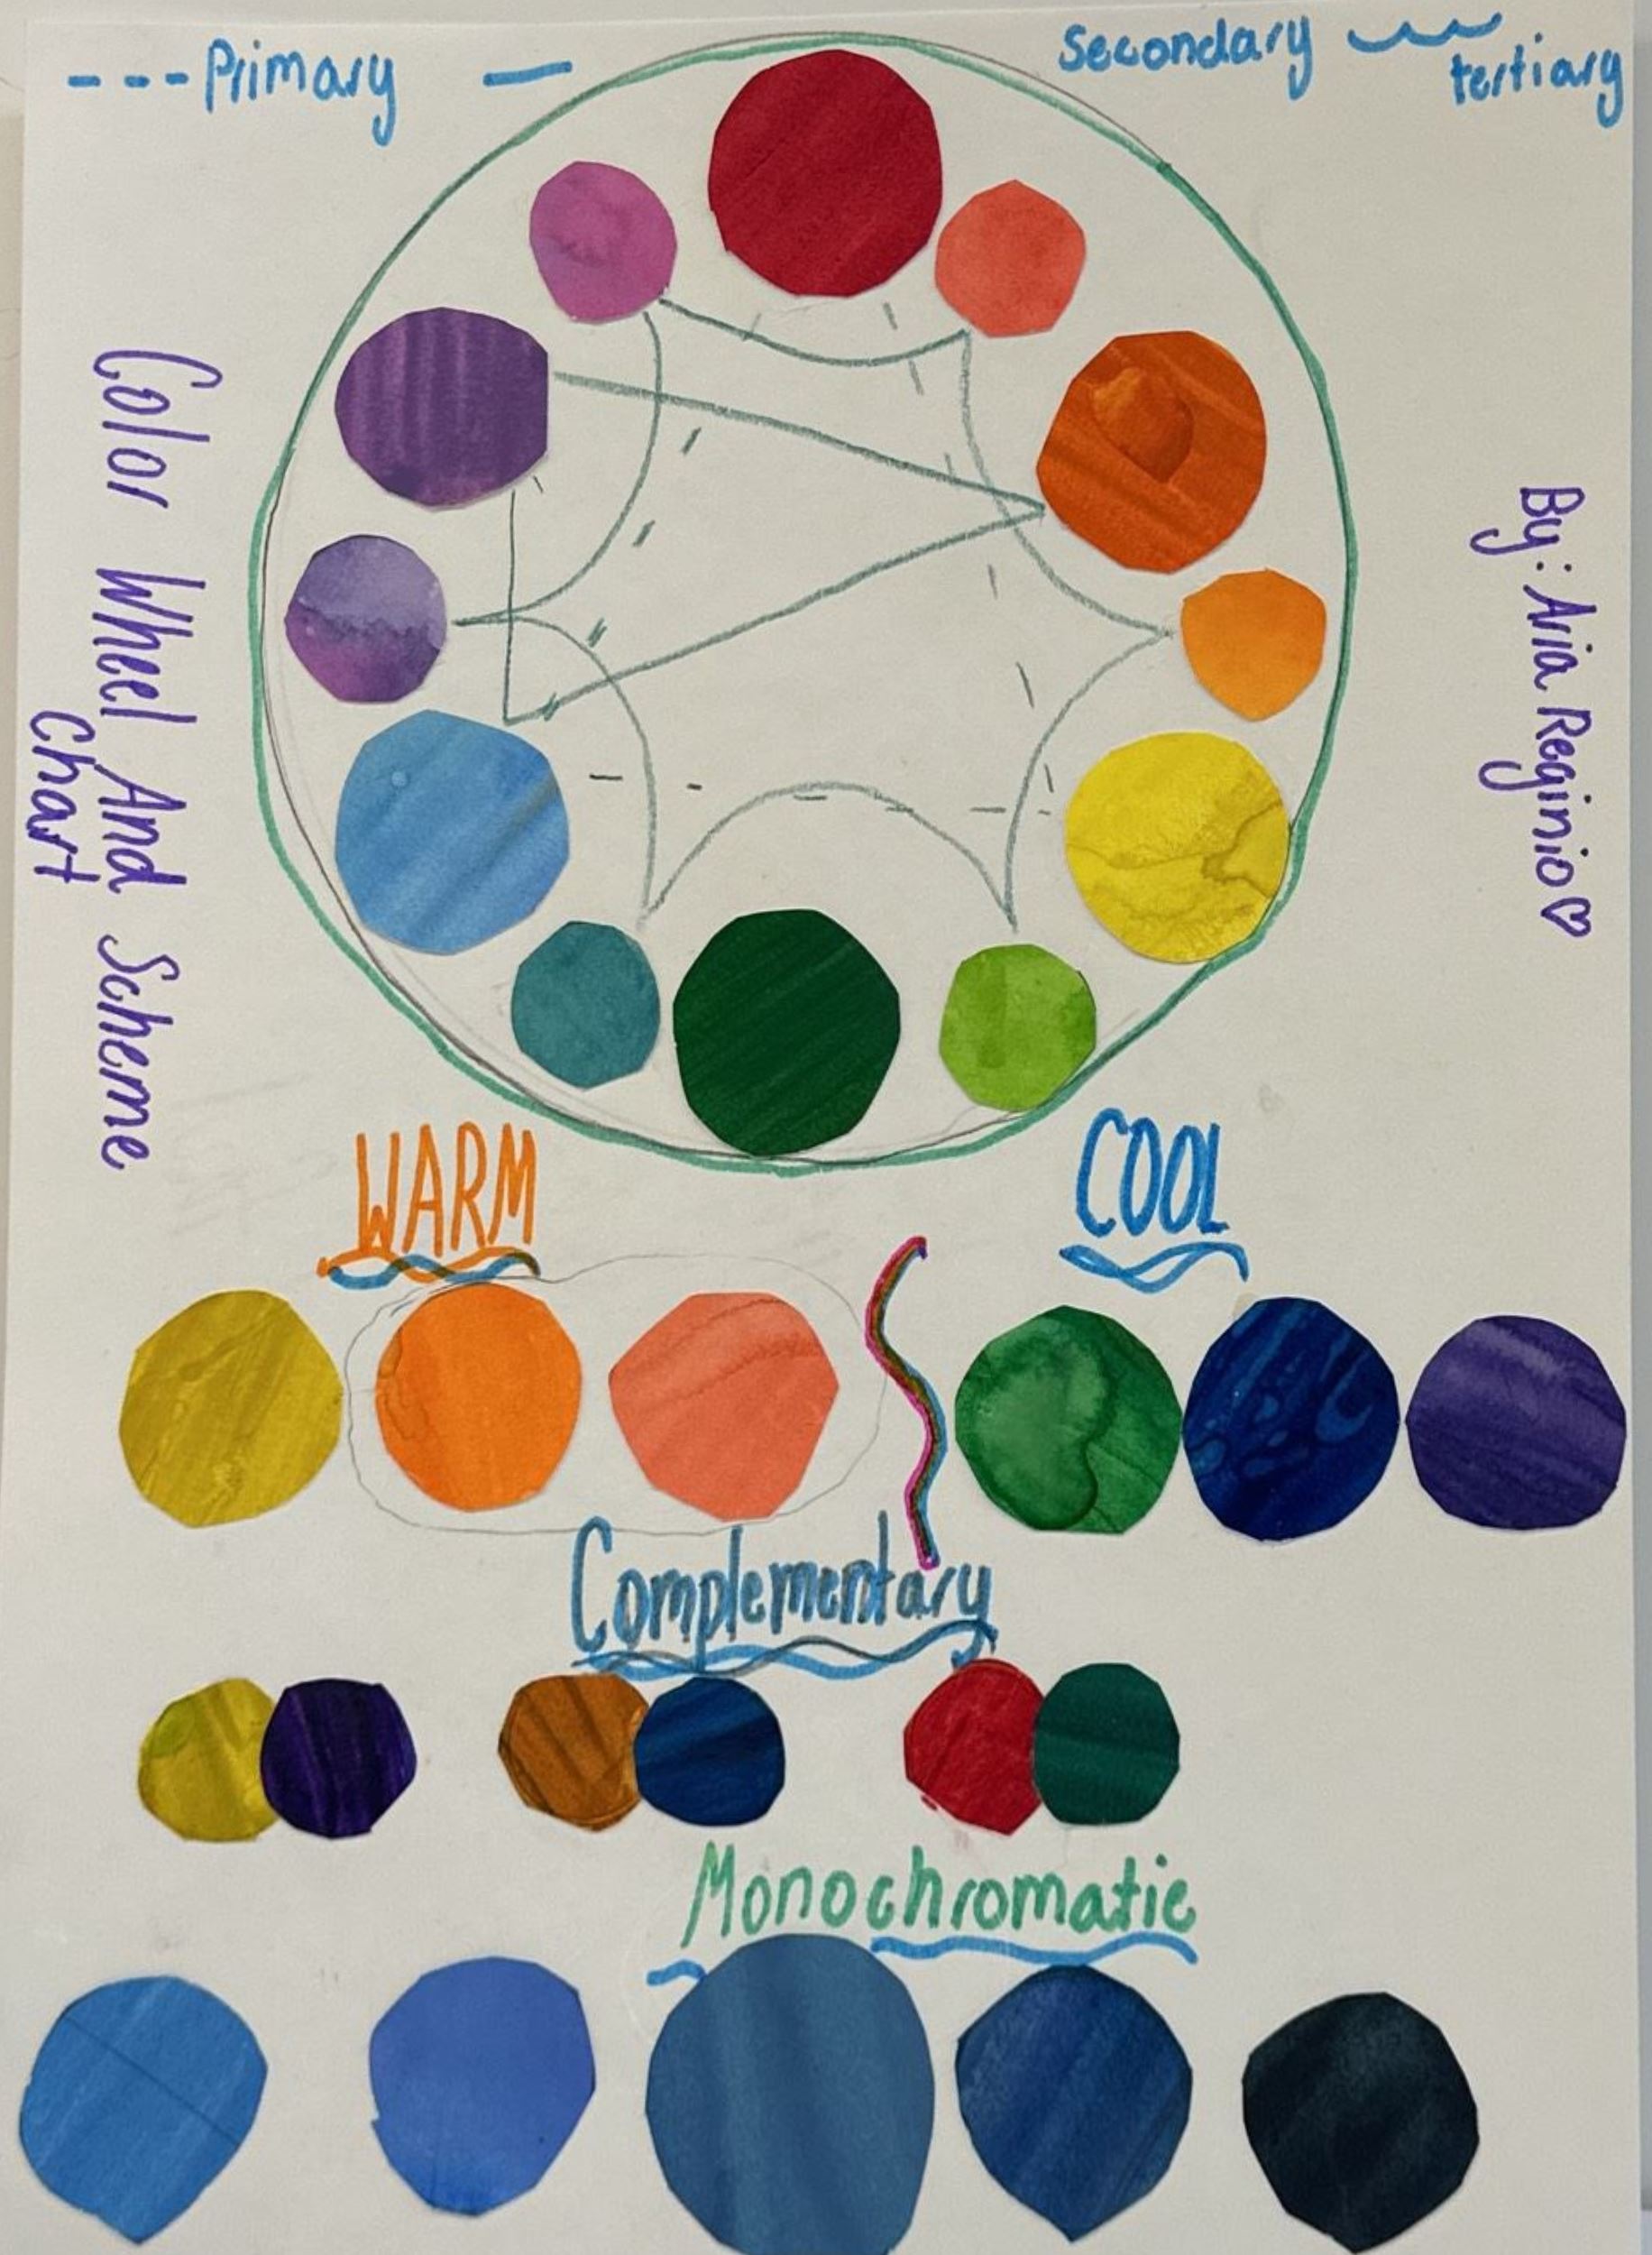 ---Primary — secondary
tertiary
Color Wheel And Scheme
Chart
By: Aria Reginio♡
WARM
COOL
Complementary
Monochromatic